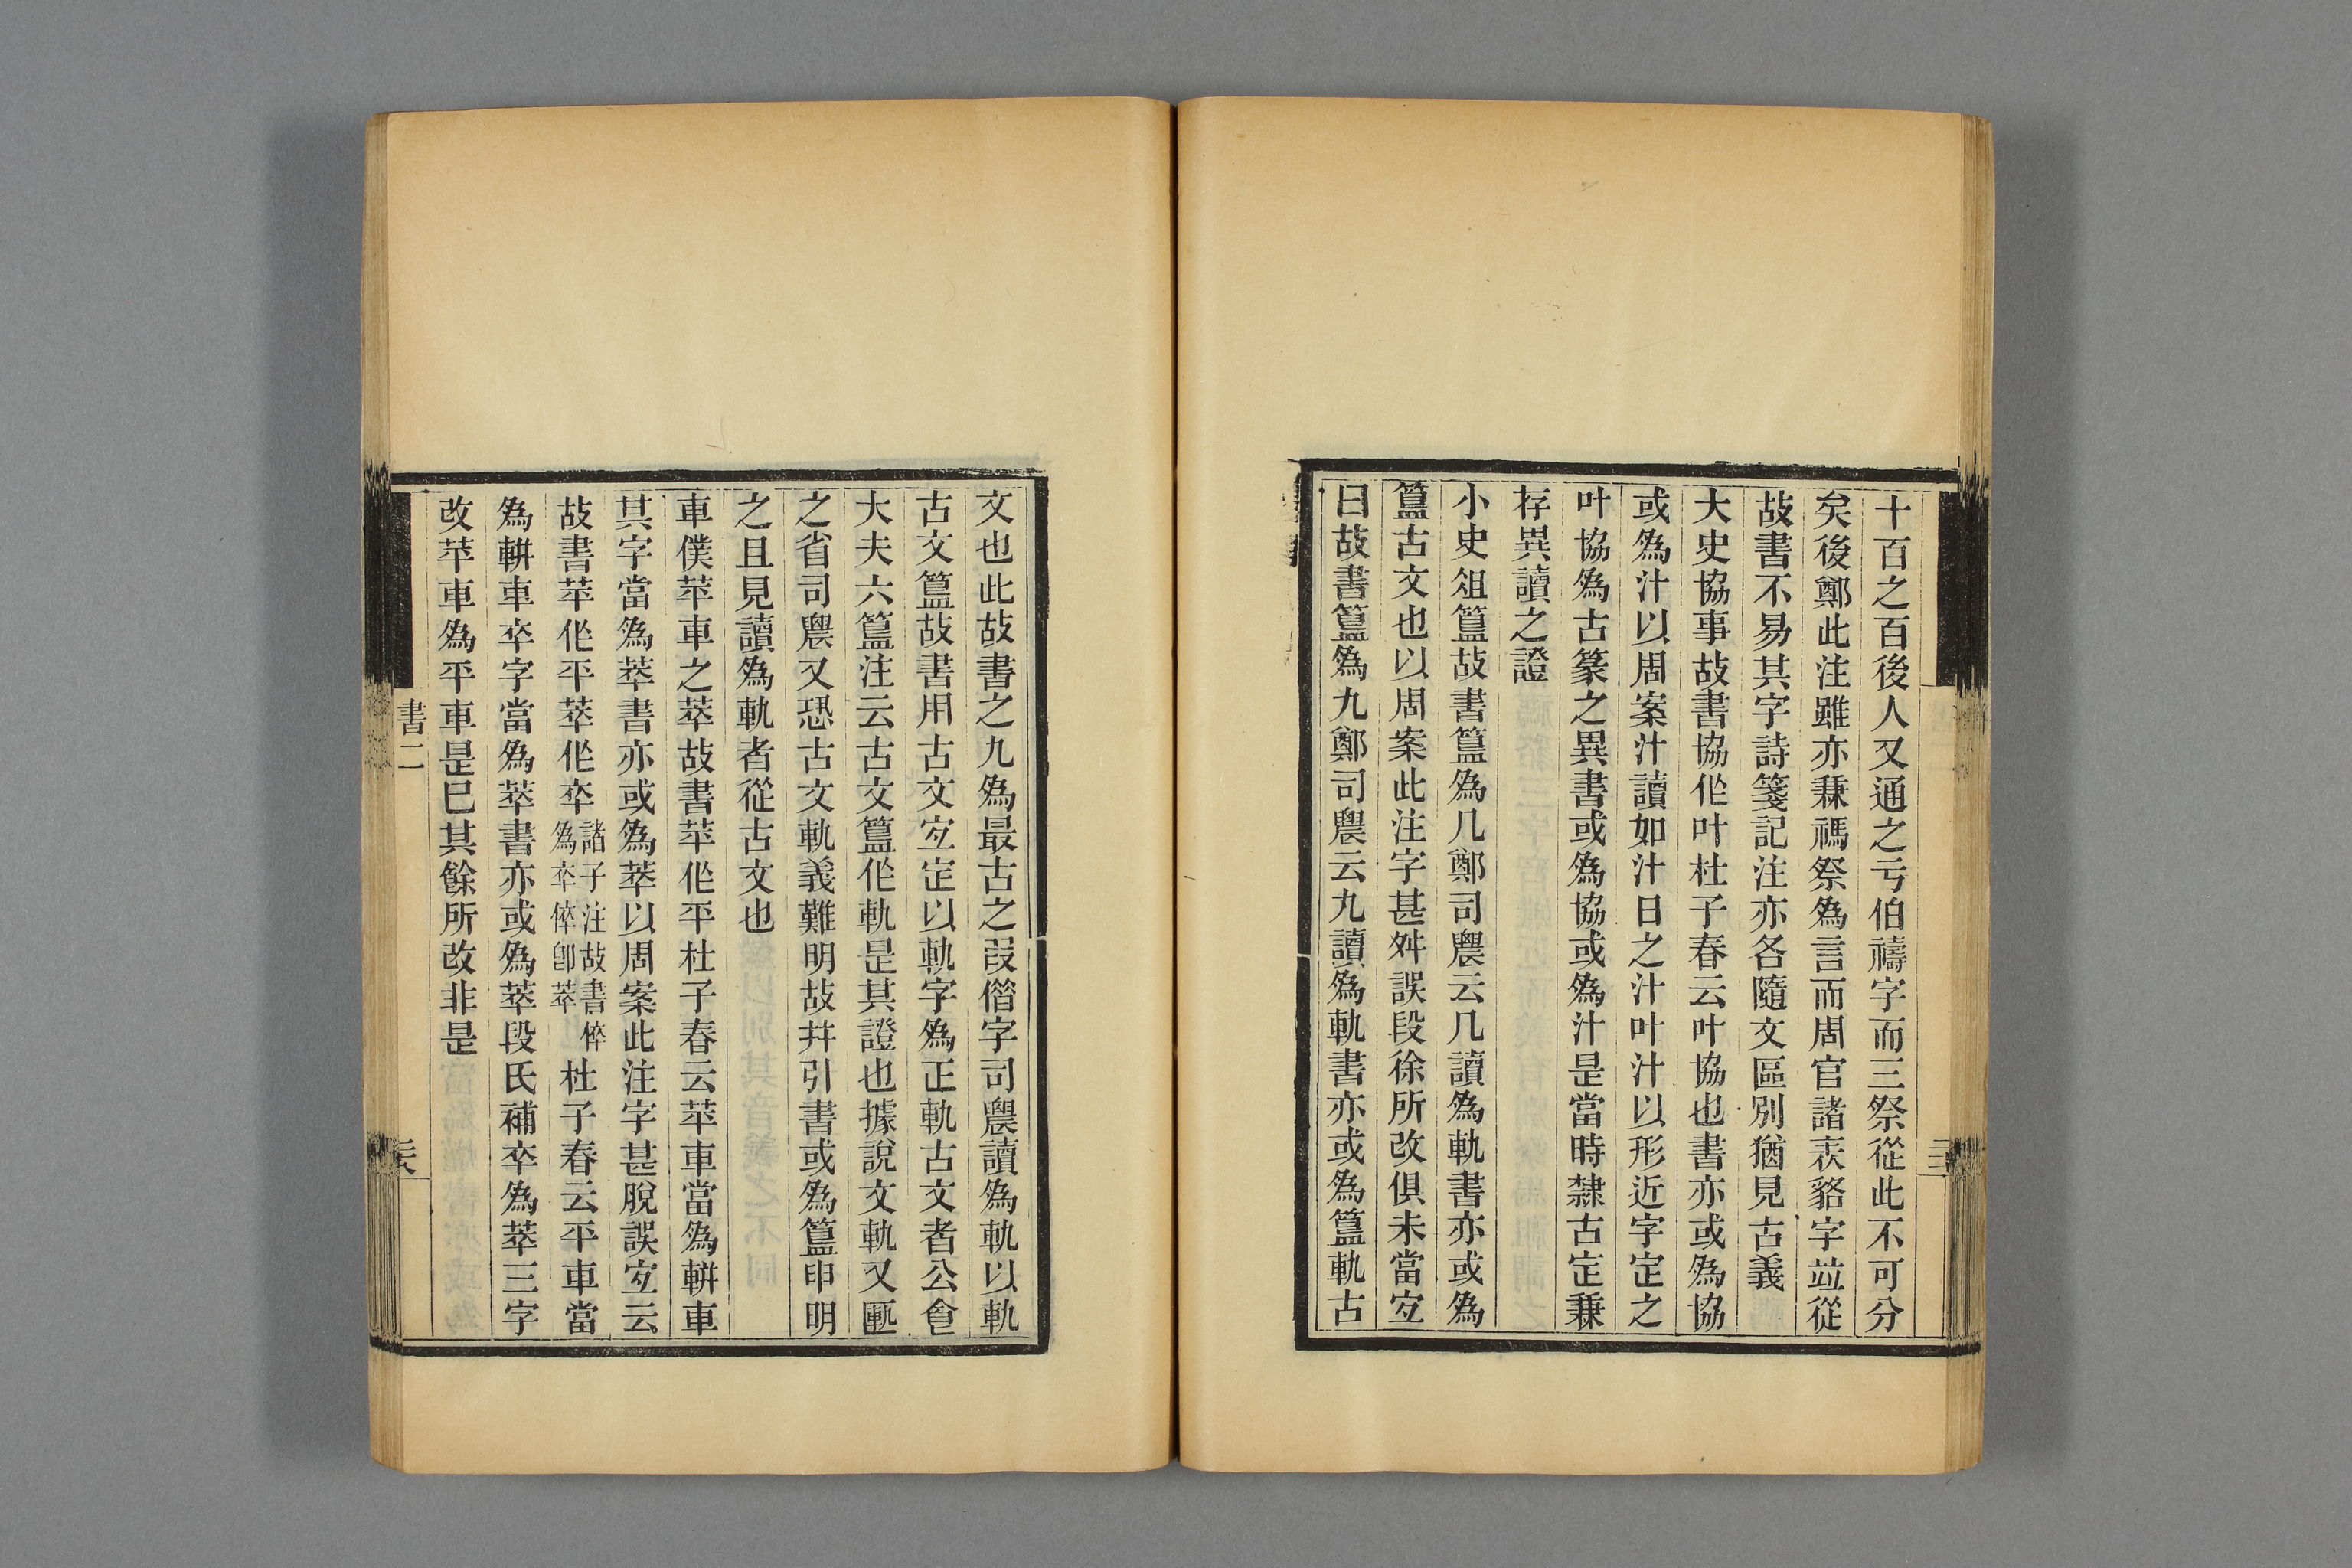 十百之百後人又通之亏伯禱字而三祭從此不可分
矣後鄭此注雖亦兼禡祭爲言而周官諸表貉字竝從
故書不易其字詩箋記注亦各隨文區別猶見古義
大史協事故書協作叶杜子春云叶協也書亦或爲協
或爲汁以周案汁讀如汁日之汁叶汁以形近字定之
叶協爲古篆之異書或爲協或爲汁是當時隸古定兼
存異讀之證
小史俎簋故書簋爲几鄭司農云几讀爲軌書亦或爲
簋古文也以周案此注字甚舛誤段徐所改俱未當宜
曰故書簋爲九鄭司農云九讀爲軌書亦或爲簋軌古
文也此故書之九爲最古之叚借字司農讀爲軌以軌
古文簋故書用古文宜定以軌字爲正軌古文者公食
大夫六簋注云古文簋作軌是其證也據說文軌又匭
之省司農又恐古文軌義難明故幷引書或爲簋申明
之且見讀爲軌者從古文也
車僕苹車之萃故書苹作平杜子春云苹車當爲軿車
其字當爲萃書亦或爲萃以周案此注字甚脫誤宜云
故書苹作平萃作卒
諸子注故書倅
爲卒倅卽萃
杜子春云平車當
爲軿車卒字當爲萃書亦或爲萃段氏補卒爲萃三字
改苹車爲平車是已其餘所改非是
書二